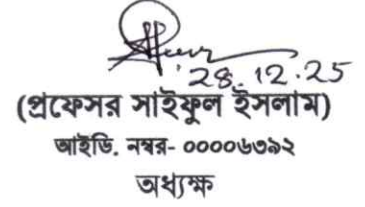 28.12.25
(প্রফেসর সাইফুল ইসলাম)
আইডি. নম্বর- ০০০০৬৩৯২
অধ্যক্ষ